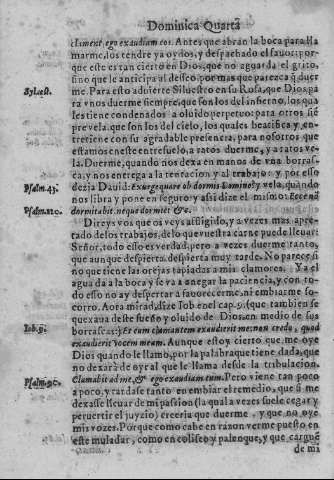 Dominica Quarta
clament, ego exaudiam eos. Antes que abran la boca para lla
marme, los tendre ya oydos, y despachado el fauor: por
que este es tan cierto en Dios, que no aguarda el grito,
sino que le anticipa al desseo, por mas que parezca q̃ duer
Syluest.
me. Para esto aduierte Siluestro en su Rosa, que Dios pa
ra vnos duerme siempre, que son los del infierno, los qua
les tiene condenados a oluido perpetuo: para otros siẽ
pre vela, que son los del cielo, los quales beatifica y en-
tretiene con su agradable presencia, para nosotros que
estamos en este entresuelo, a ratos duerme, y a ratos ve-
la. Duerme, quando nos dexa en manos de vna borras-
ca, y nos entrega a la tentacion y al trabajo: y por esso
Psalm. 43.
dezia Dauid: Exurge quare obdormis Domine? y vela, quando
nos libra y pone en seguro: y assi dize el mismo: Ecce nõ
Psalm. 120.
dormitabit, neque dormiet &c.
Direys vos que os veys afligido, y a vezes mas apre-
tado de los trabajos, de lo que nuestra carne puede lleuar:
Señor, todo esso es verdad, pero a vezes duerme tanto,
que aunque despierta, despierta muy tarde. No parece si
no que tiene las orejas tapiadas a mis clamores. Ya el
agua da a la boca y se va a anegar la paciencia, y con to-
do esso no ay despertar a fauorecerme, ni embiarme so-
corro. Aora mirad, dize Iob en el cap. 9. (que tambien se
quexaua deste sueño y oluido de Dios, en medio de sus
Iob. 9.
borrascas:) Et cum clamantem exaudierit me: non credo, quod
exaudierit vocem meam. Aunque estoy cierto que me oye
Dios quando le llamo, por la palabra que tiene dada, que
no dexarà de oyr al que le llama desde la tribulacion.
Psalm. 90.
Clamabit ad me, & ego exaudiam eum. Pero viene tan poco
a poco, y tardase tanto en embiar el remedio, que si me
dexasse lleuar de mi passion (la qual a vezes suele cegar y
peruertir el juyzio) creeria que duerme, y que no oye
mis vozes. Porque como cabe en razon verme puesto en
este muladar, como en coliseo y palenque, y que cargue
de ma